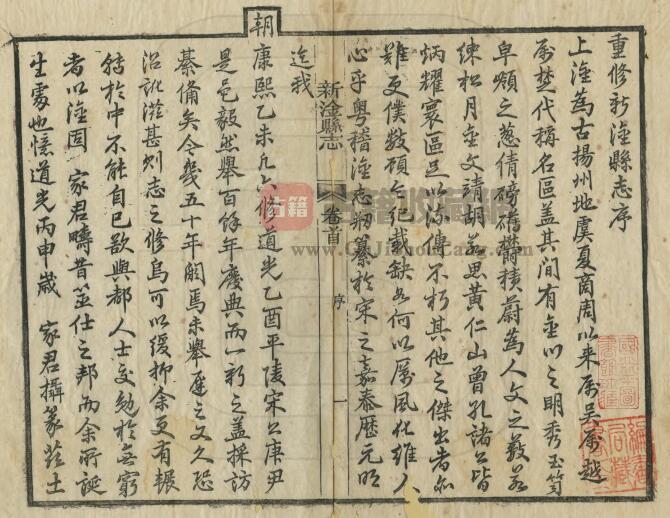 重修新淦縣志序
上淦為古揚州地虞夏商周以來屬吳屬越
屬楚代稱名區盖其間有金川之明秀玉笥
阜頫之葱倩磅礴欝積蔚為人文之薮若
練松月金文靖胡若思黃仁山曾孔諸公皆
炳耀寰區足以為傳不朽其他之傑出者亦
難更僕數顧令記載缺如何以厲風化維人
心乎粵稽淦志刱纂於宋之嘉泰歷元明
新淦縣志
卷首
序
一
迄我
朝康熙乙未凡六修道光乙酉平陵宋公庚尹
是邑毅然舉百餘年廢典而一新之盖採訪
綦備矣今幾五十年闕焉未舉歷之又久恐
沿訛滋甚則志之修烏可以緩抑余更有輾
結於中不能自已欲與都人士交勉於無窮
者以淦固 家君疇昔筮仕之邦而余所誕
生處也憶道光丙申歲 家君攝篆茲土
古籍收藏網
www.GuJiShouCang.com